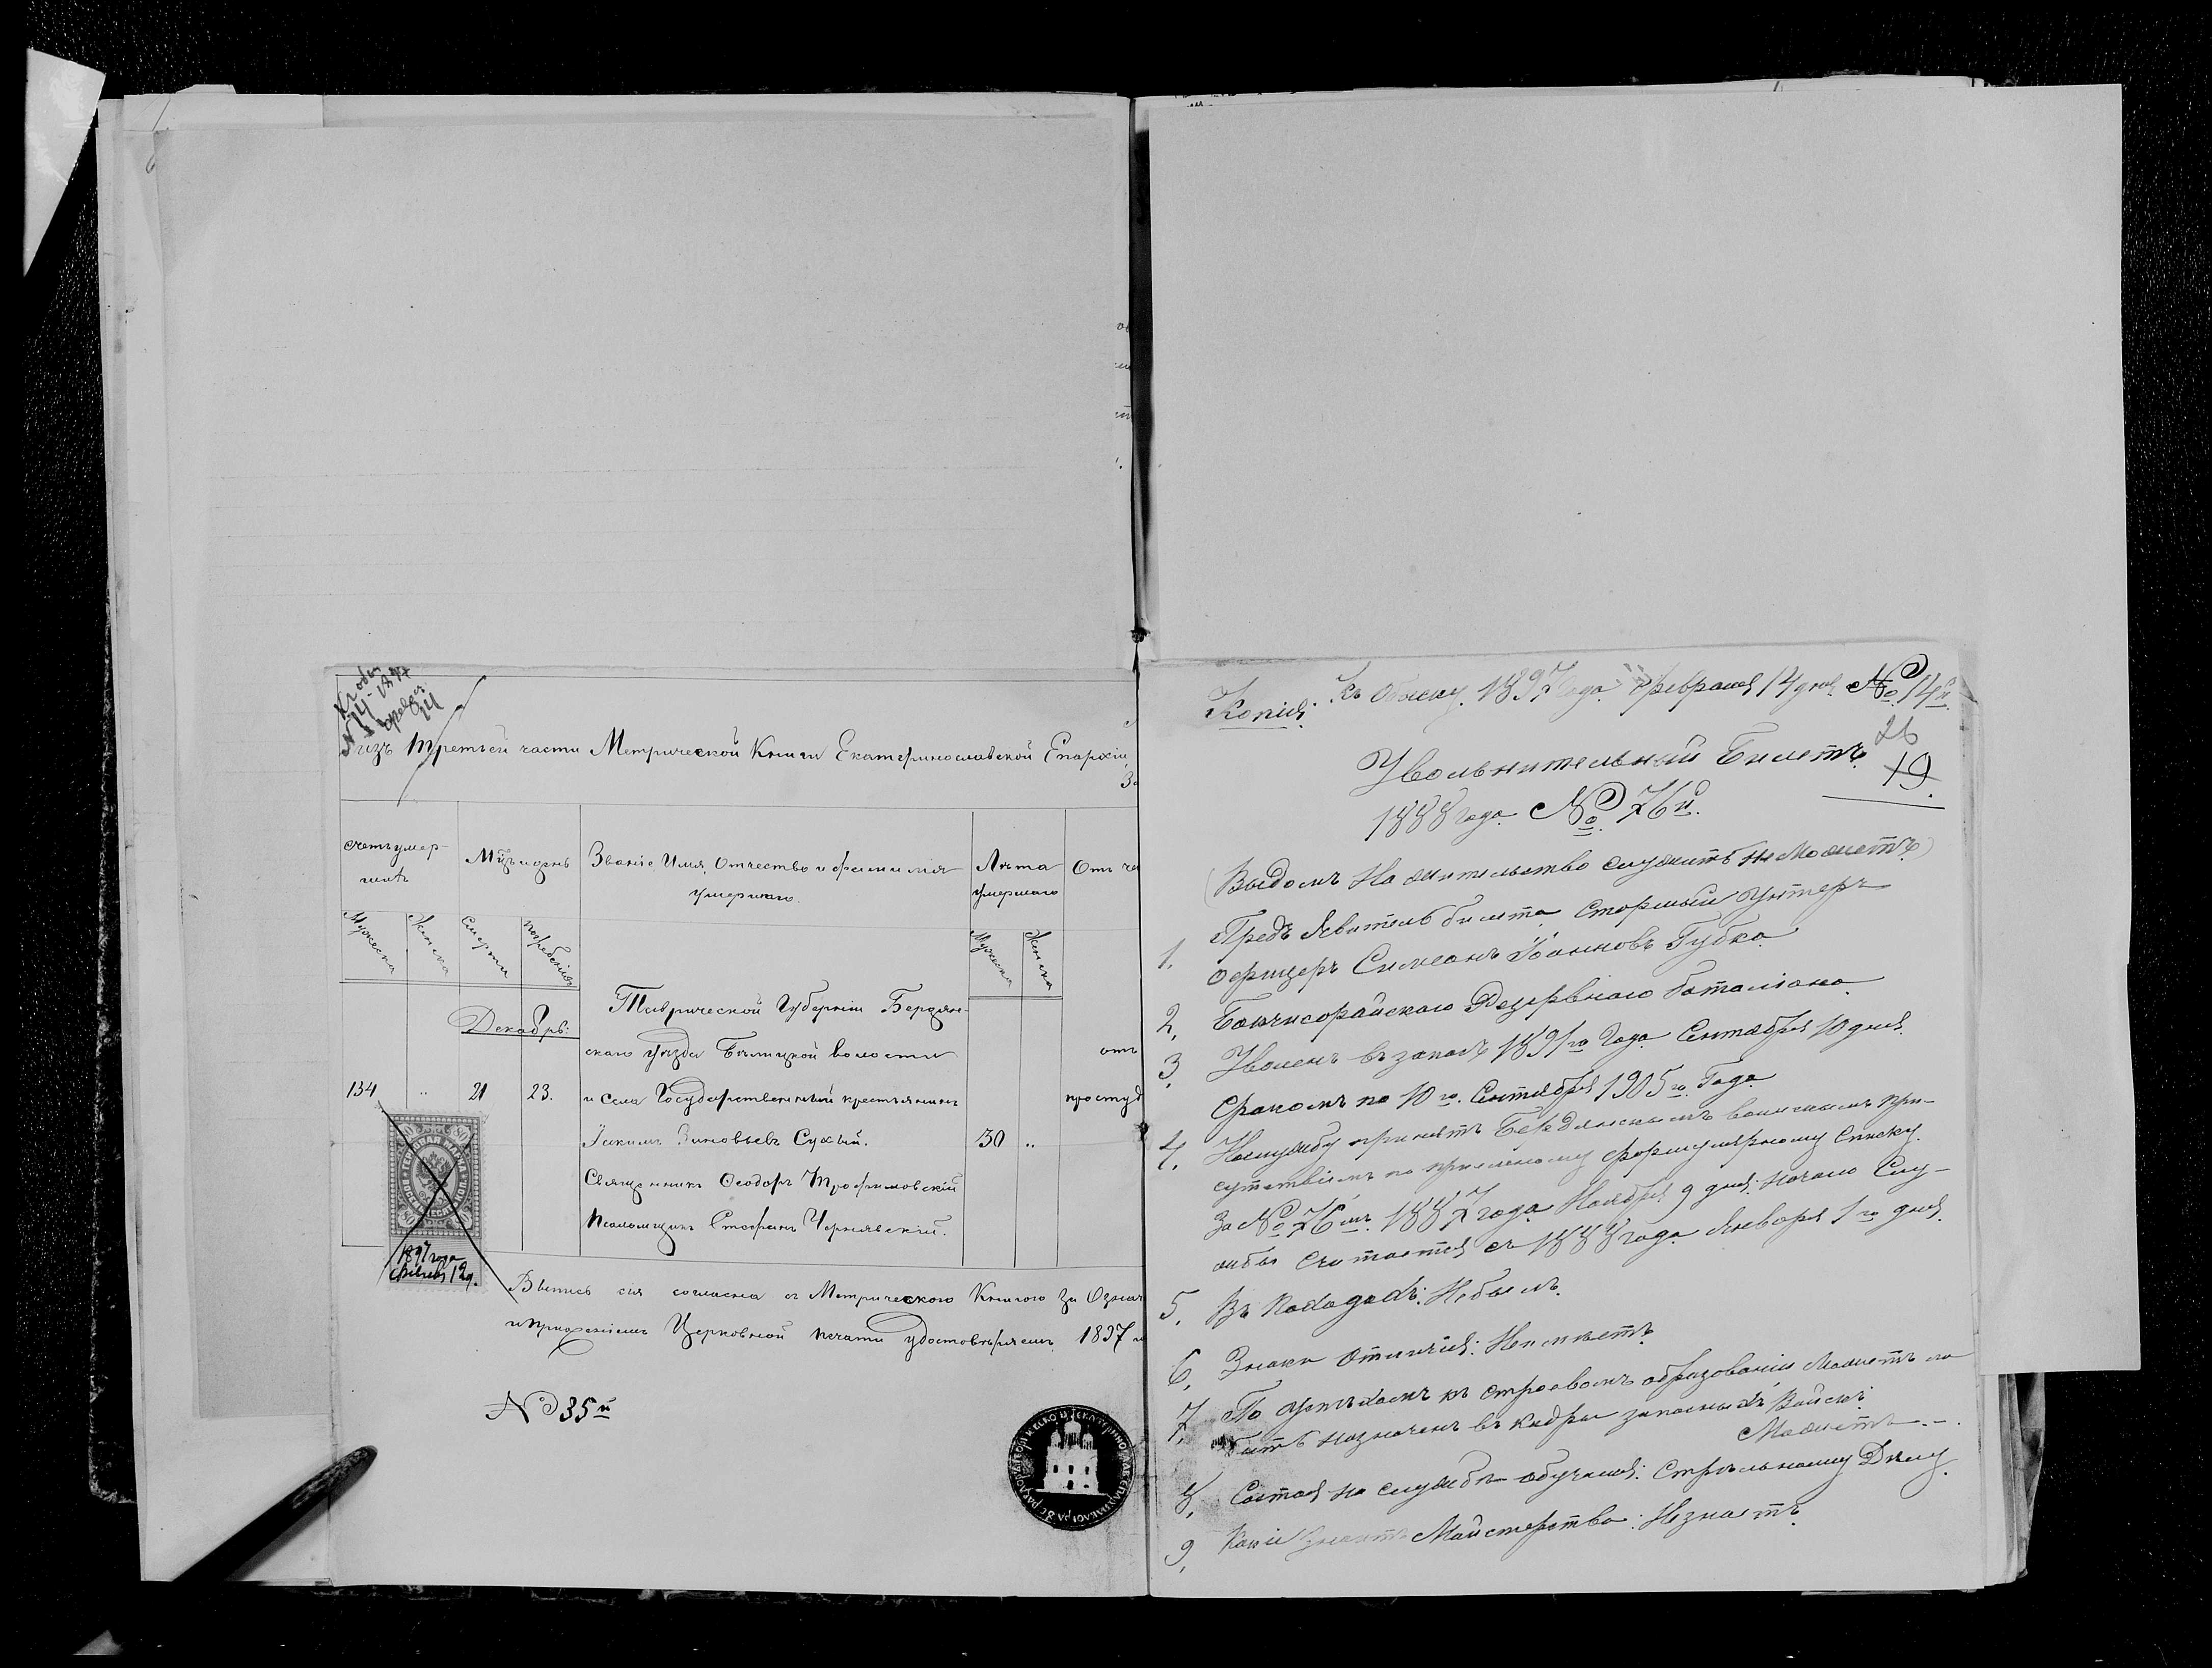 Къ обыску
№ 14 - 1897
Февраля
14
изъ третьей части Метрической Книги Екатеринославской Епархіи,
За
счетъ умер-
шихъ
Мѣсъ и день
Званіе Имя, Отчество и фамилія
умершаго.
Лѣта
умершаго
Отъ че
Мужеска
Женска
Смерти
погребенія
Мужеска
Женска
Декабрь:
Таврической Губерніи Бердян-
скаго уѣзда волости
отъ
134 „ 21 23. и села Государственный крестьянинъ
простуд
Іакимъ Зиновьевъ Сухый. 30 „
Священникъ Ѳеодоръ Трофимовскій
Псаломщикъ Стефанъ Чернявскій.
80 80
ГЕРБОВАЯ МАРКА
80 80
1897 года
12 д.
Выпись сія согласна съ Метрическою Книгою за Означ
и приложеніемъ Церковной печати удостовѣряемъ 1897
№ 35й
Копія. Къ Обыску. 1897 года Февраля 14 дня № 14й
26
19.
Увольнительный Билетъ
1888 года № 76й.
(Видомъ На жительство служить не Можетъ)
1. Предъявитель билета Старшый Унтеръ
офицеръ Симеонъ Іоанновъ Губка
2, Бахчисарайскаго Резервнаго баталіона
3, Уволенъ въ запасъ 1891го Года Сентября 10 дня.
Срокомъ по 10го. Сентября 1905го. Года
4, На службу принятъ Бердянскимъ воинскимъ при-
сутствіемъ по пріемному формулярному Списку.
За № 76мъ. 1887 года Ноября 9 дня. Начало Слу-
жбы считается съ 1888 года Января 1го дня.
5, Въ Походахъ: Небылъ.
6, Знаки Отличія: Неимѣетъ.
7, По успѣхамъ въ строевомъ образованіи Можетъ ли
быть назначенъ въ кадры запасныхъ Войскъ:
Можетъ.-.
8, Состоя на службѣ обучался: Стрѣльному Дѣлу.
9, Какіе знаетъ Майстерства: Незнаетъ.